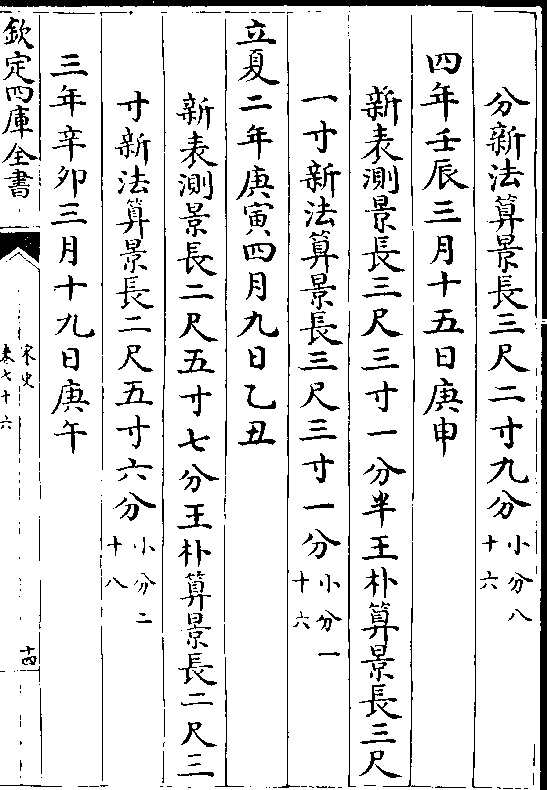 分新法算景長三尺二寸九分小分八十六
四年壬辰三月十五日庚申
新表測景長三尺三寸一分半王朴算景長三尺
一寸新法算景長三尺三寸一分小分一十六
立夏二年庚寅四月九日乙丑
新表測景長二尺五寸七分王朴算景長二尺三
寸新法算景長二尺五寸六分小分二十八
三年辛卯三月十九日庚午
欽定四庫全書
宋史
卷七十六
十四